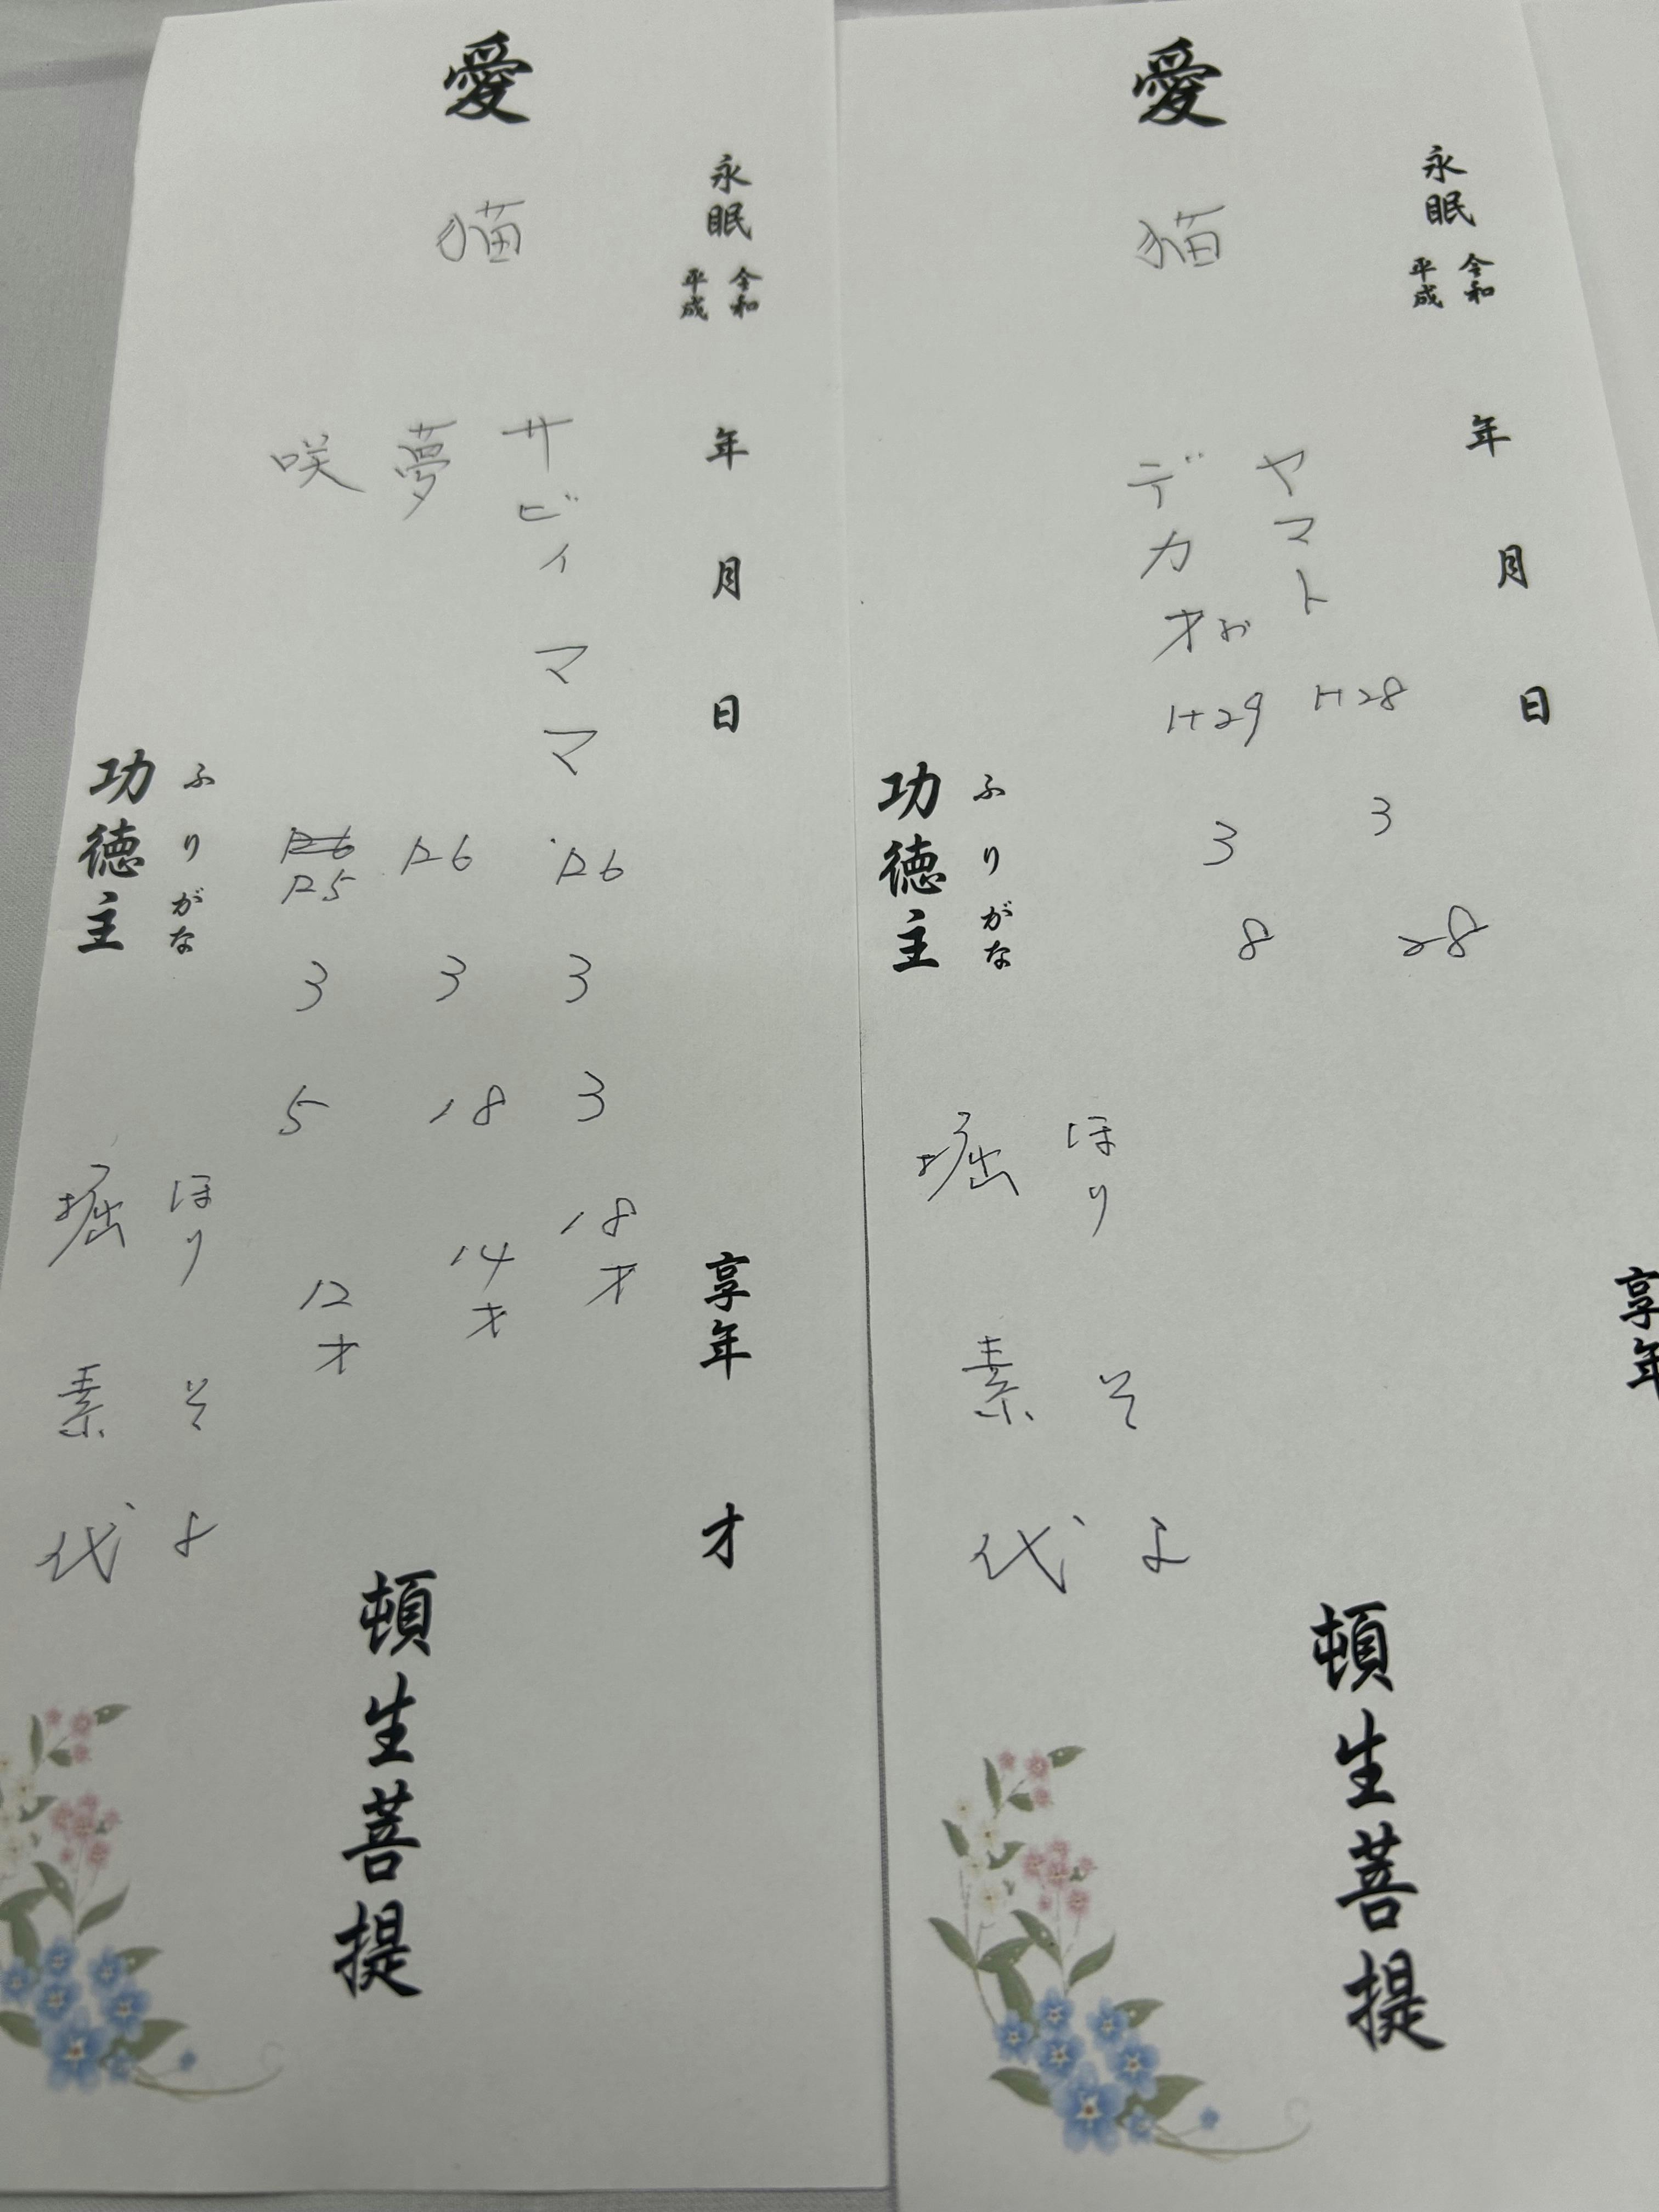 永眠 令和
平成
年 月 日
享年 才
愛 猫
サビィママ R6 3 3 18才
夢 R6 3 18 14才
咲 R6 R5 3 5 12才
頓生菩提
ふりがな ほり そよ
功徳主 堀 素代
永眠 令和
平成
年 月 日
享年
愛 猫
ヤマト H28 3 28
デカオ お H29 3 8
頓生菩提
ふりがな ほり そよ
功徳主 堀 素代